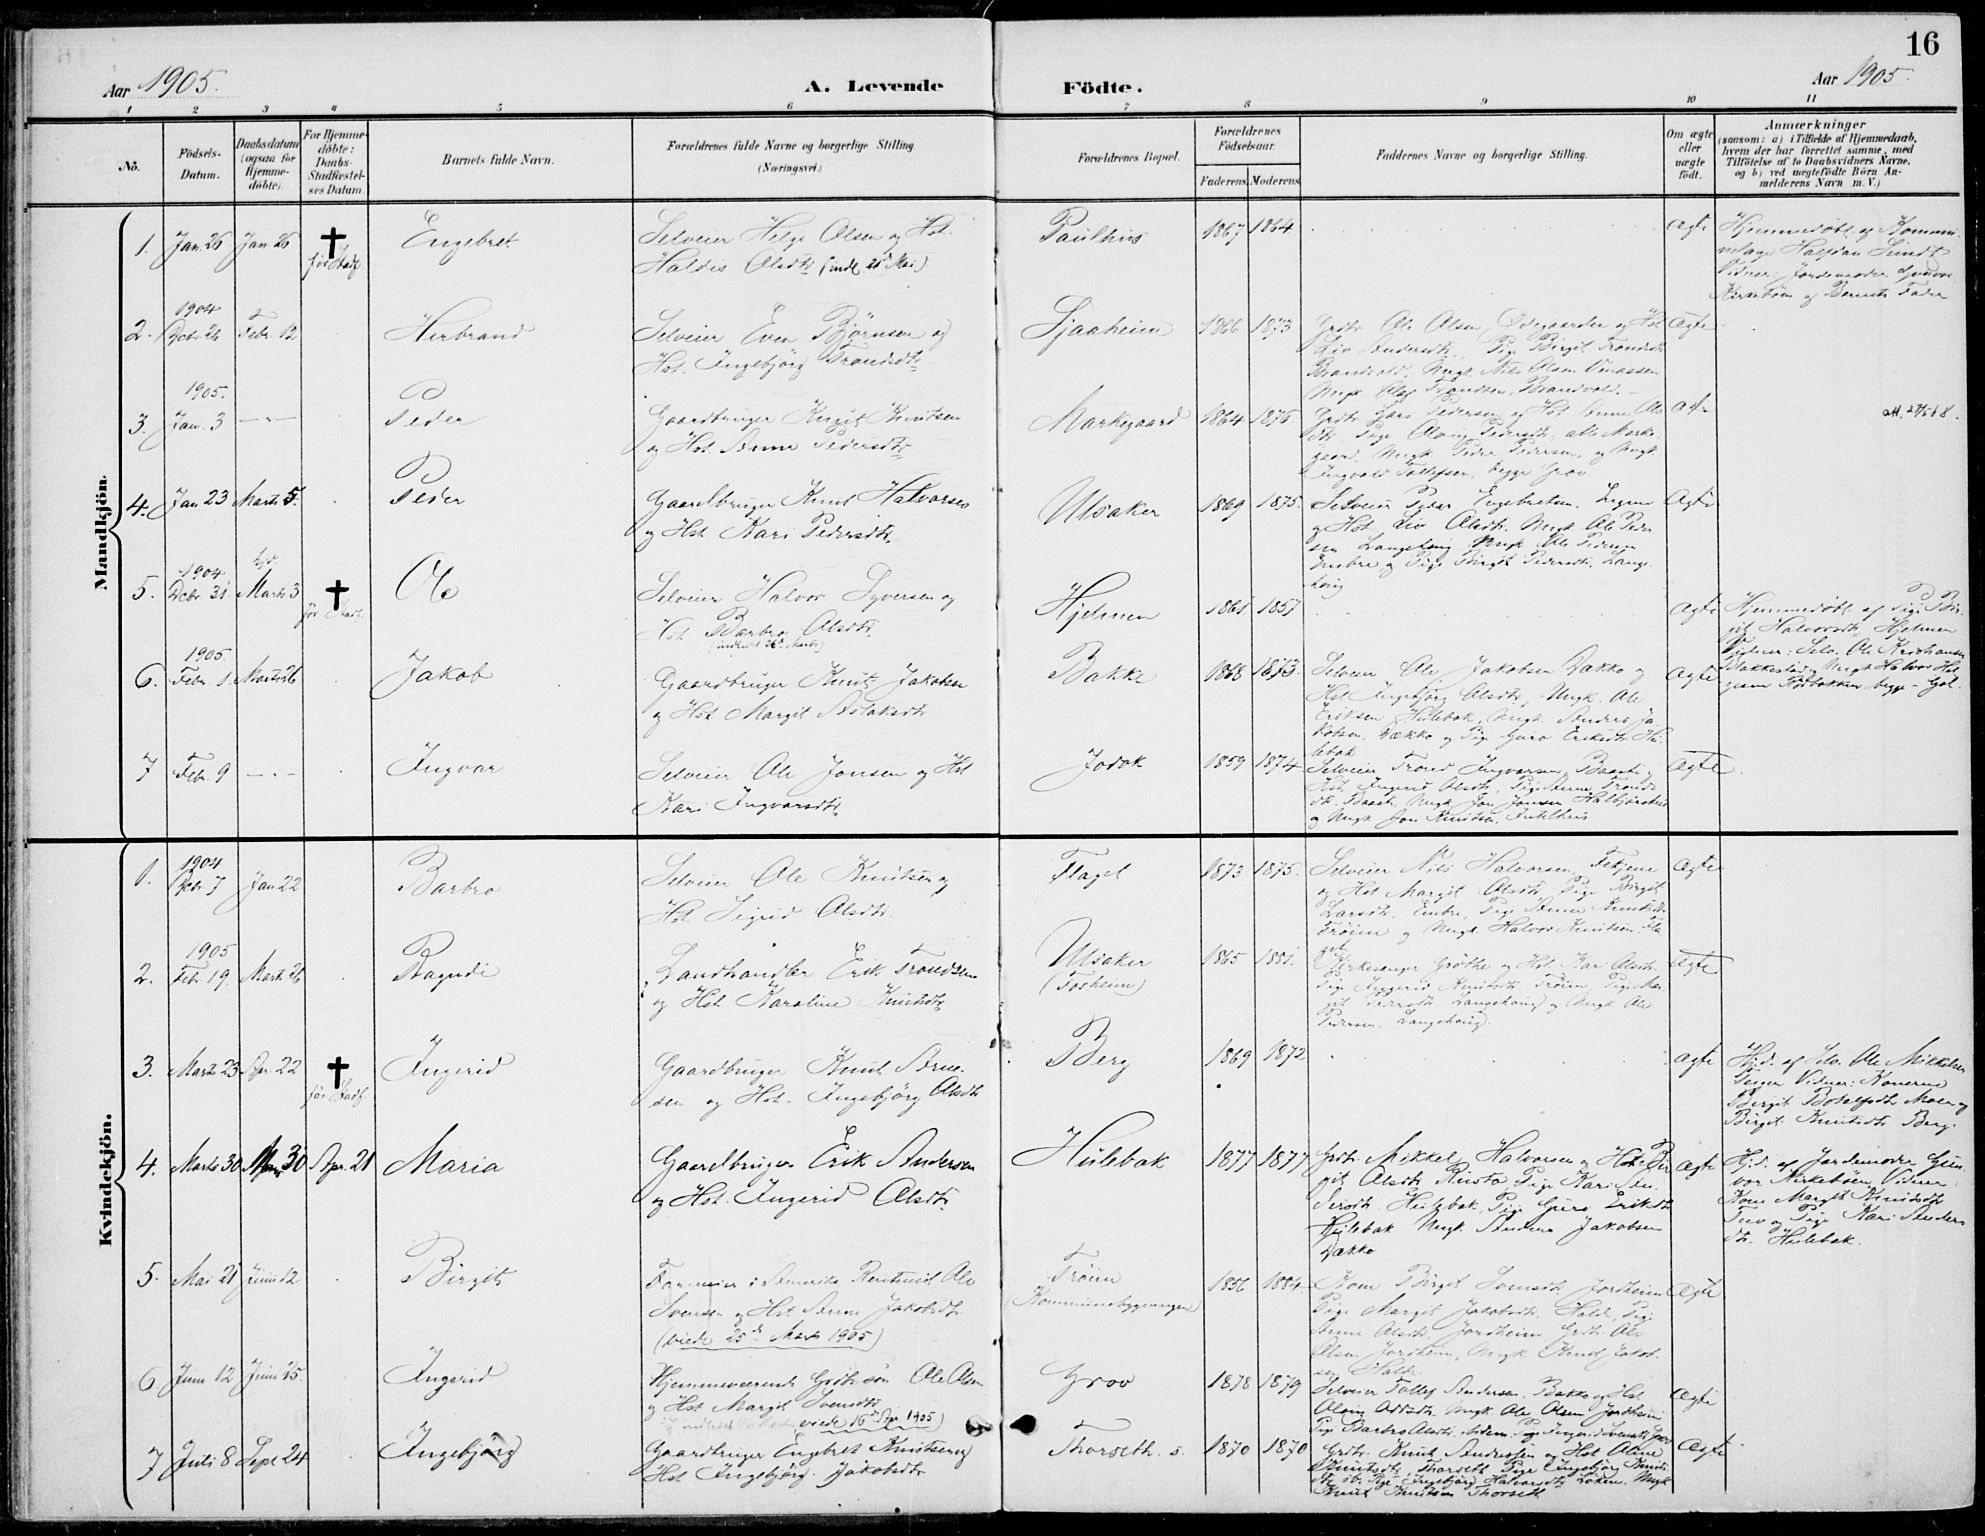 16
Aar 1905.
A. Levende Födte.
Aar 1905.
1 2 3 4 5 6 7 8 9 10 11
No.
Födsels-
Datum.
Daabsdatum
(ogsaa for
Hjemme-
döbte).
For Hjemme-
döbte:
Daabs-
Stadfæstel-
ses Datum.
Barnets fulde Navn.
Forældrenes fulde Navne og borgerlige Stilling
(Næringsvei.)
Forældrenes Bopæl.
Forældrenes
Födselsaar.
Faderens. Moderens
Faddernes Navne og borgerlige Stilling.
Om ægte
eller
uægte
födt.
Anmærkninger
(saasom: a) i Tilfælde af Hjemmedaab,
hvem der har forrettet samme, med
Tilföielse af to Daabsvidners Navne.
og b) ved uægtefödte Börn An-
melderens Navn m. V.)
Mandkjön.
1. Jan. 26 Jan 26 † før Stadf. Engebret
Selveier Helge Olsen og Hst.
Haldis Olsdtr
Paulhus 1867 1864 ægte
Hjemmedøbt af Kommu-
nelæge Halfdan Sundt
Vidner: Jordemoder Gunvor
Kirkebøen og Barnets Fader
1904
2. Dcbr. 26 Febr. 12 Herbrand
Selveier Even Bjørnsen og
Hst. Ingebjörg Trondsdtr
Sjaaheim 1866 1873
Grdbr. Ole Olsen Ødegaarden og Hst
Liv Andersdtr, Pige Birgit Trondsdtr
Brandvold, Ungk. Nils Olsen
Ungk. Olaf Trondsen, Brandvold.
Ægte
1905.
3. Jan. 3 — " — Peder
Gaardbruger Knut Knutsen
og Hst. Anne Pedersdtr
Markegaard 1864 1876
Grdbr. Lars Pedersen og Hst Anne Ols
dtr, Pige Pedersdtr. alle Marke-
gaard, Ungk. Peder Pedersen, og Ungk.
Ingvald Tollefsen, begge Grov
Ægte
4. Jan 23 Marts 5. Peder
Gaardbruger Knut Halvorsen
og Hst. Kari Pedersdtr.
Ulsaker 1869 1875.
Selveier Peder Engebretsen,
og Hst. Liv Olsdtr. Ungk Ole Peder
sen Langehaug Ungk Ole Pedersen
Embre og Pige Birgit Pedersdtr. Lange-
haug
Ægte
1904
5. Dcbr. 31 Marts 3 † før Stadf. Ole
Selveier Halvor Syversen og
Hst. Barbro Olsdtr.
Hjelmen 1861 1857 Ægte
Hjemmedøbt af Pige Bir-
git Halvorsdtr Hjelmen
Vidner: Selv. Ole Kristiansen
Blakkestad og Ungk Halvor Hel-
gesen begge Gol.
1905.
6. Febr. 1 Marts 26 Jakob
Gaardbruger Knut Jakobsen
og Hst. Margit Aslaksdtr
Bakke 1868 1873.
Selveier Ole Jakobsen Dokko og
Hst Ingebjörg Olsdtr, Ungk. Ole
Eriksen Hulebak, Ungk. Anders Ja-
kobsen Dokko og Pige Guro Eriksdtr Hu-
lebak
Ægte
7 Febr. 9 — " — Ingvar
Selveier Ole Jonsen og Hst
Kari Ingvarsdtr
Jodok 1859 1874
Selveier Trond Ingvarsen Baasti
Hst. Ingerid Olsdtr, Pige Anne Tronds
dtr. Baasti, Ungk Jon Jonsen
og Ungk Jon Knutsen,
Ægte
Kvindekjön.
1904
1. Dcbr 7 Jan 22 Barbro
Selveier Ole Knutsen og
Hst. Sigrid Olsdtr
Flaget 1873 1875.
Selveier Nils Halvorsen Fekjene
og Hst Margit Olsdtr, Pige Birgit
Larsdtr. Embre, Pige Anne Knutsdtr
Trøim og Ungk. Halvor Knutsen Fla-
get
Ægte
1905
2. Febr 19. Marts 26 Ragndi
Landhandler Erik Trondsen
og Hst Karoline Knutsdtr
Ulsaker
(Torheim) 1865 1881.
Kirkesanger Grøthe og Hst Kari Olsdtr.
Pige Ingerid Knutsdtr Trøim, Pige Mar-
git Pedersdtr Langehaug og Ungk Ole
Pedersen. Langehaug.
Ægte
3. Marts 23 Apr. 22 † før Stadf Ingerid
Gaardbruger Knut Arne-
sen og Hst. Ingebjörg Olsdtr
Berg 1869 1872 ægte
Hjd. af Selv. Ole Mikkelsen
Vidner: Konerne
Birgit Botolfsdtr Moen og
Birgit Knutsdtr Berg.
4. Marts 30 30 Apr. 21 Maria
Gaardbruger Erik Andersen
og Hst. Ingerid Olsdtr.
Hulebak 1877 1877
Grdbr. Mikkel Halvorsen og Hst. Bir
git Olsdtr Rusto Pige Kari An-
dersdtr Hulebak, Pige Guro Eriksdtr
Hulebak Ungk. Anders Jakobsen
Dokko
Ægte
Hjd. af Jordemoder Gun-
vor Kirkebøen, Vidner:
Kone Margit Knutsdtr
Tuv og Pige Kari Anders
dtr. Hulebak.
5. Mai 21 Juni 12 Birgit
Farmeier i Amerika Ole
Svensen og Hst Anne Jakobsdtr
(viede 25de Marts 1905)
Trøim
(Kommunebygningen) 1856 1884
Kone Birgit Svensdtr Jordheim
Pige Margit Jakobsdtr, Hald, Pige
Anne Olsdtr. Jordheim, Grdbr. Ole
Olsen Jordheim, Ungk. Knud Jakob-
sen Hald.
Ægte
6 Juni 12 Juni 25. Ingerid
Hjemmeværende Grdbr. søn Ole Olsen
og Hst Margit Svensdtr
viede 16de Apr 1905)
Grov 1878 1879
Selveier Tollef Andersen, Bakko og Hst
Ungk. Ole Olsen Jordheim
Pige Barbro Olsdtr. ibidem, Pige Ingerid Svensdtr Grov
Ægte
7 Juli 8 Sept 24 Ingebjørg
Gaardbruger Engebret Knutsen og
Hst Ingebjörg Jakobsdtr
Thorseth. s. 1870 1870
Grdbr. Knut Andersen og Hst
Knutsdtr, Thorseth Pige Ingebjörg Knuts-
dtr ib. Pige Ingebjörg Halvorsdtr Løken, Ungk
Knut Knutsen Thorseth
Ægte